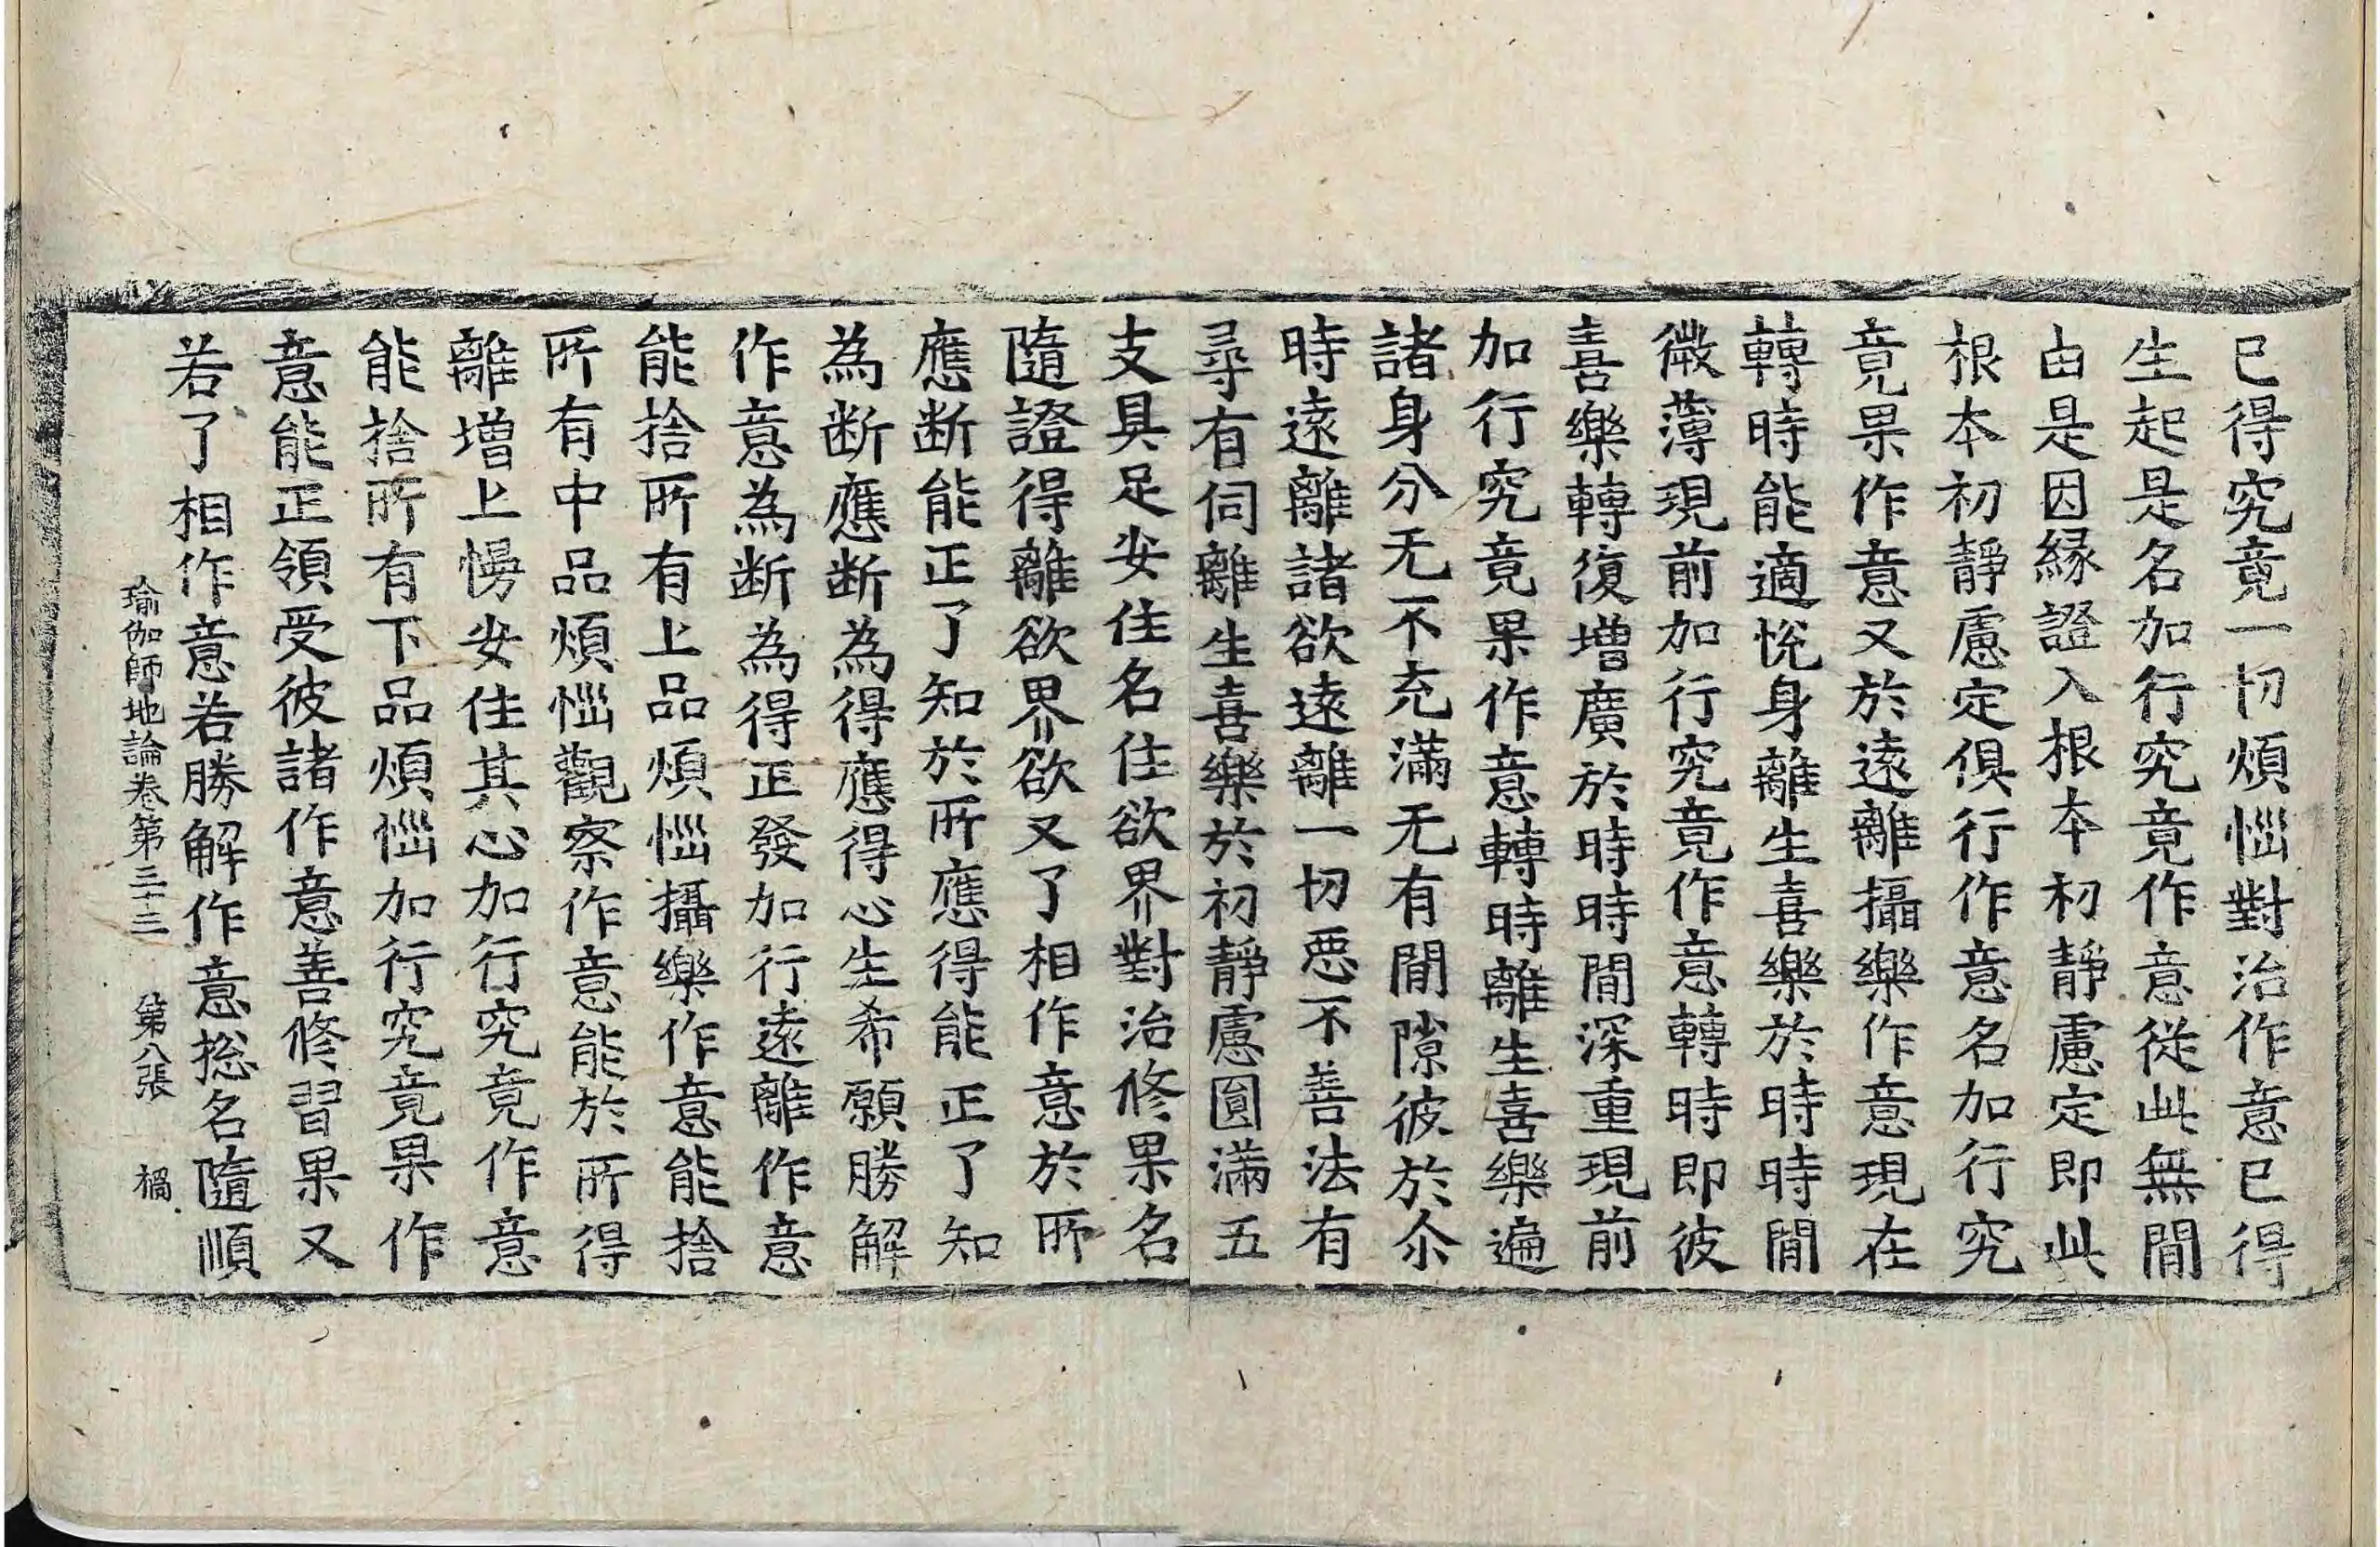 已得究竟一切煩惱對治作意已得
生起是名加行究竟作意從此無間
由是因緣證入根本初靜慮定即此
根本初靜慮定俱行作意名加行究
竟果作意又於遠離攝樂作意現在
轉時能適悅身離生喜樂於時時間
微薄現前加行究竟作意轉時即彼
喜樂轉復增廣於時時間深重現前
加行究竟果作意轉時離生喜樂遍
諸身分无不充滿无有間隙彼於尒
時遠離諸欲遠離一切惡不善法有
尋有伺離生喜樂於初靜慮圓滿五
支具足安住名住欲界對治修果名
隨證得離欲界欲又了相作意於所
應断能正了知於所應得能正了知
為断應断為得應得心生希願勝解
作意為断為得正發加行遠離作意
能捨所有上品煩惱攝樂作意能捨
所有中品煩惱觀察作意能於所得
離增上慢安住其心加行究竟作意
能捨所有下品煩惱加行究竟果作
意能正領受彼諸作意善修習果又
若了相作意若勝解作意捴名隨順
瑜伽師地論卷第三十三 第八張 槅